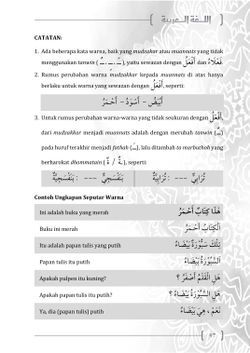 اللغة العربية
CATATAN:
1. Ada beberapa kata warna, baik yang mudzakar atau muannats yang tidak
menggunakan tanwin ( ـٌ ـٍ ـً ), yaitu sewazan dengan أَفْعَلُ dan فَعْلَاءُ
2. Rumus perubahan warna mudzakkar kepada muannats di atas hanya
berlaku untuk warna yang sewazan dengan أَفْعَلُ, seperti:
أَبْيَضُ – أَسْوَدُ – أَحْمَرُ
3. Untuk rumus perubahan warna-warna yang tidak seukuran dengan أَفْعَلُ
dari mudzakkar menjadi muannats adalah dengan merubah tanwin
pada huruf terakhir menjadi fathah, lalu ditambah ta marbuthah yang
berharokat dhommatain ( ةٌ / ـةٌ ), seperti:
تُرَابِيٌّ --- تُرَابِيَّةٌ بَنَفْسَجِيٌّ --- بَنَفْسَجِيَّةٌ
Contoh Ungkapan Seputar Warna
Ini adalah buku yang merah هَذَا كِتَابٌ أَحْمَرُ
Buku ini merah الْكِتَابُ أَحْمَرُ
Itu adalah papan tulis yang putih تِلْكَ سَبُّوْرَةٌ بَيْضَاءُ
Papan tulis itu putih السَّبُّوْرَةُ بَيْضَاءُ
Apakah pulpen itu kuning? هَلِ الْقَلَمُ أَصْفَرُ ؟
Apakah papan tulis itu putih? هَلِ السَّبُّوْرَةُ بَيْضَاءُ ؟
Ya, dia (papan tulis) putih نَعَمْ، هِيَ بَيْضَاءُ